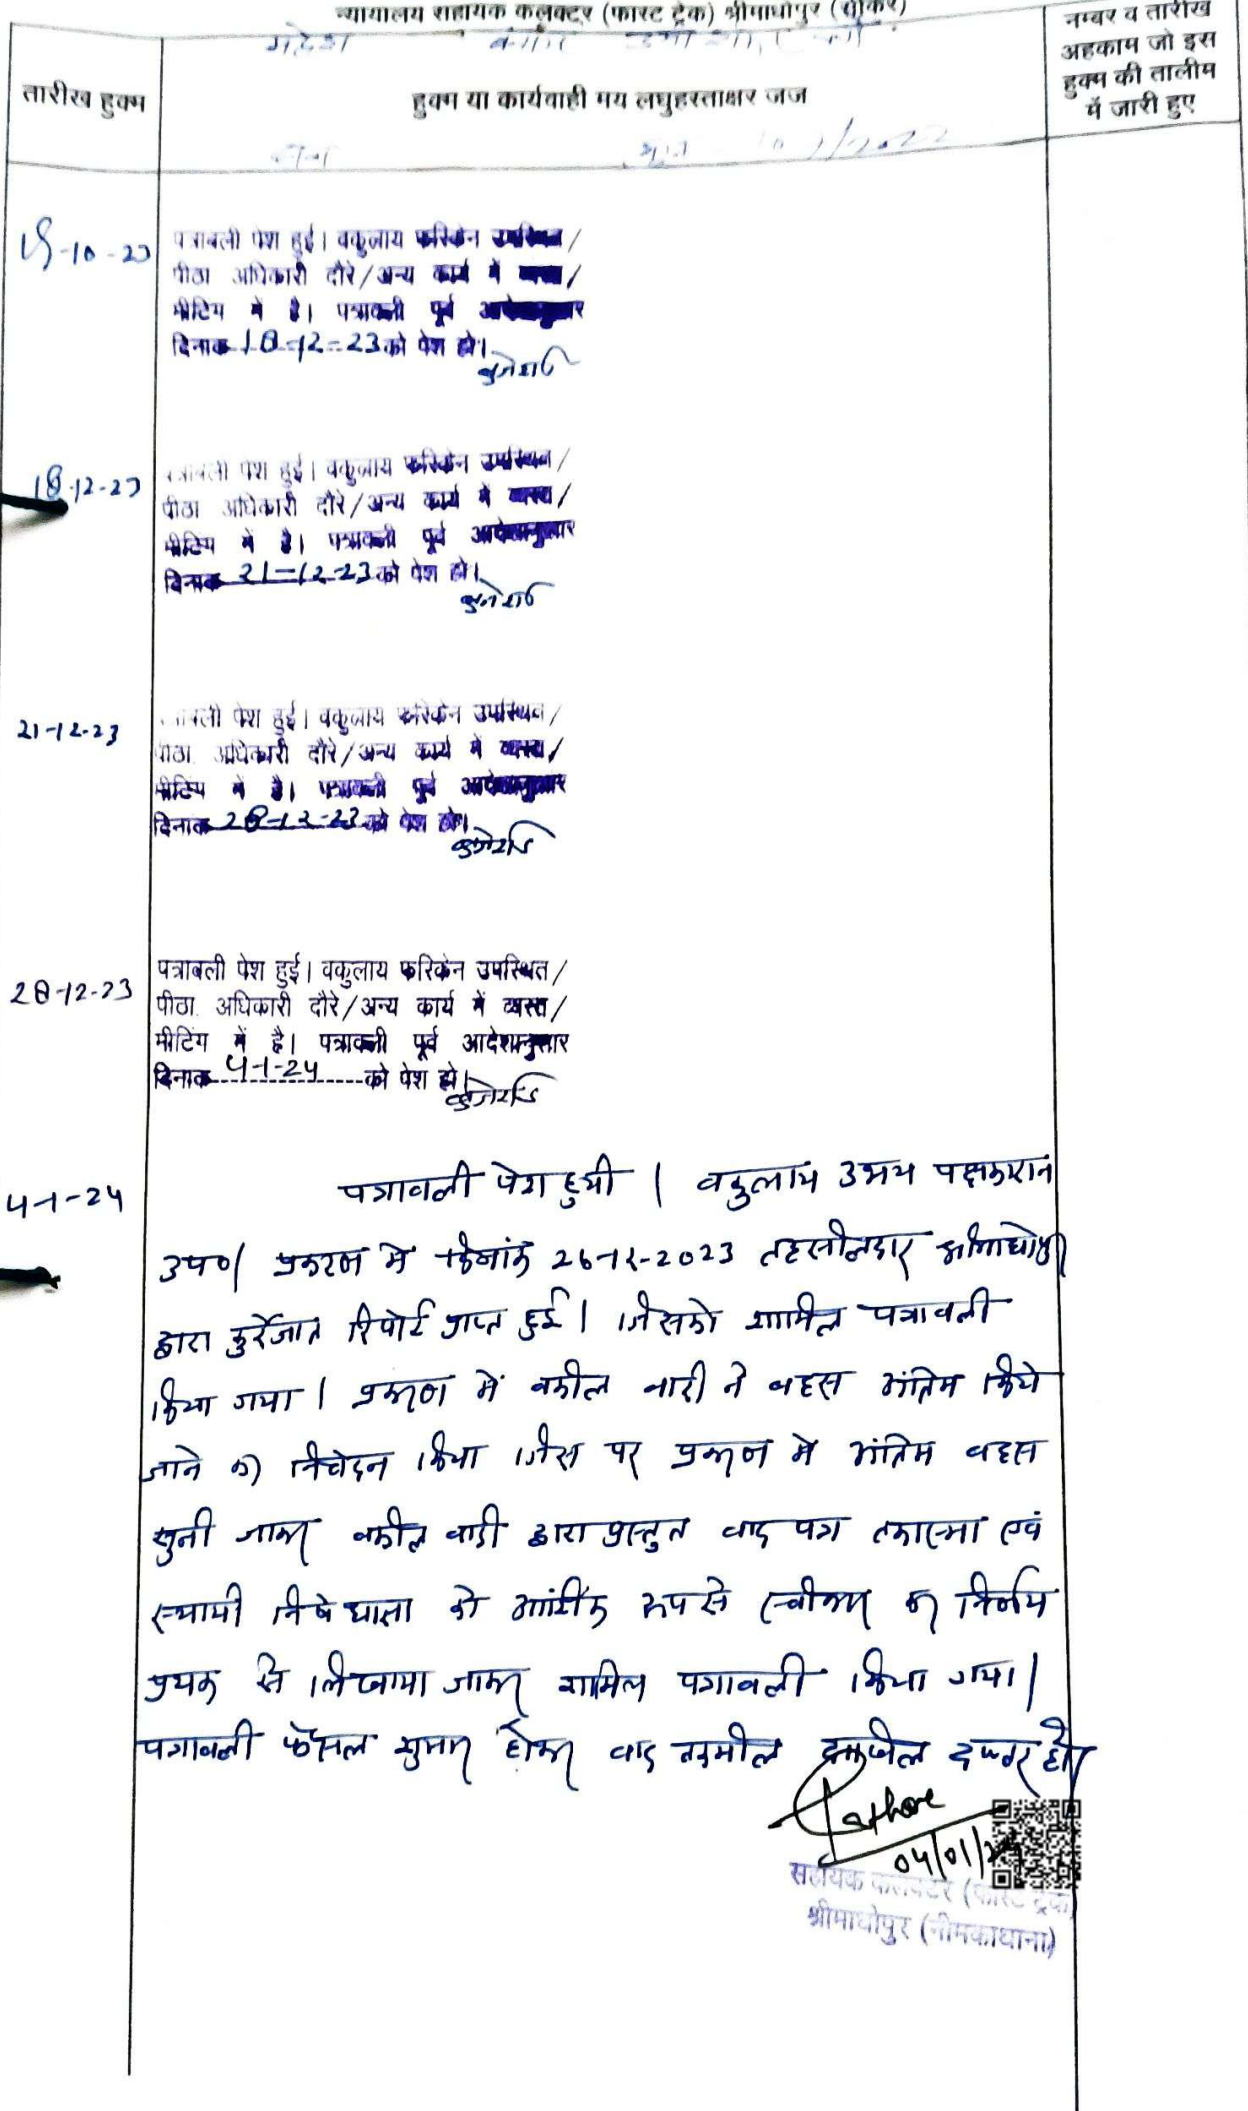 न्यायालय सहायक कलक्टर (फास्ट ट्रेक) श्रीमाधोपुर (सीकर)
महेश बनाम
तारीख हुक्म
हुक्म या कार्यवाही मय लघुहस्ताक्षर जज
नम्बर व तारीख
अहकाम जो इस
हुक्म की तालीम
में जारी हुए
-10-23
पत्रावली पेश हुई। वकुलाय फरिकेन उपस्थित/
पीठा अधिकारी दौरे/अन्य कार्य में व्यस्त/
मीटिंग में है। पत्रावली पूर्व आदेशानुसार
दिनांक 18-12-23 को पेश हो।
18-12-23
पत्रावली पेश हुई। वकुलाय फरिकेन उपस्थित/
पीठा अधिकारी दौरे/अन्य कार्य में व्यस्त/
मीटिंग में है। पत्रावली पूर्व आदेशानुसार
दिनांक 21-12-23 को पेश हो।
21-12-23
पत्रावली पेश हुई। वकुलाय फरिकेन उपस्थित/
पीठा अधिकारी दौरे/अन्य कार्य में व्यस्त/
मीटिंग में है। पत्रावली पूर्व आदेशानुसार
दिनांक 28-12-23 को पेश हो।
28-12-23
पत्रावली पेश हुई। वकुलाय फरिकेन उपस्थित/
पीठा. अधिकारी दौरे/अन्य कार्य में व्यस्त/
मीटिंग में है। पत्रावली पूर्व आदेशानुसार
दिनांक 4-1-24 को पेश हो।
4-1-24
पत्रावली पेश हुयी। वकुलाय उभय पक्षकारान
उप०। प्रकरण में दिनांक 26-12-2023 तहसीलदार श्रीमाधोपुर
द्वारा कुर्रेजात रिपोर्ट प्राप्त हुई। जिसको शामिल पत्रावली
किया गया। प्रकरण में वकील वादी ने बहस अंतिम किये
जाने का निवेदन किया जिस पर प्रकरण में अंतिम बहस
सुनी जाकर वकील वादी द्वारा प्रस्तुत वाद पत्र तकास्मा एवं
स्थायी निषेधाज्ञा को आंशिक रूप से स्वीकार कर निर्णय
प्रथक से लिखाया जाकर शामिल पत्रावली किया गया।
पत्रावली फैसल शुमार होकर बाद तकमील दाखिल दफ्तर हो।
Rathore
04/01/24
सहायक कलक्टर (फास्ट ट्रेक)
श्रीमाधोपुर (नीमकाथाना)